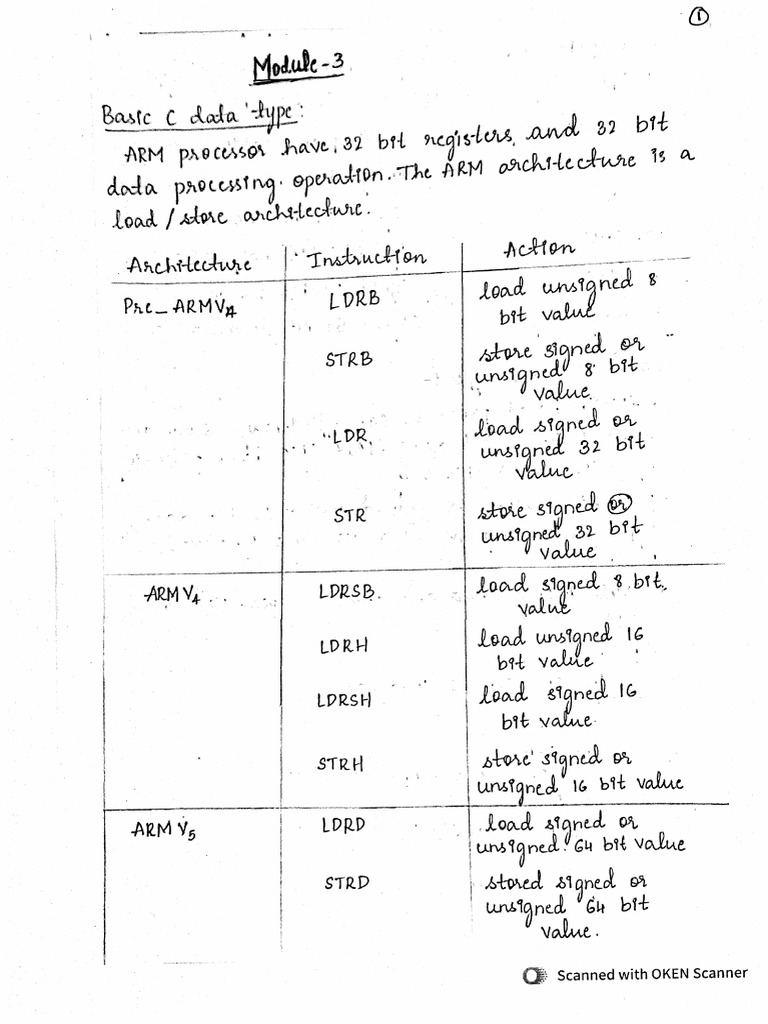 1
Module-3
Basic C data type:
ARM processor have 32 bit registers and 32 bit
data processing operation. The ARM architecture is a
load / store architecture.
Architecture Instruction Action
Pre_ARMV4 LDRB load unsigned 8
bit value
STRB store signed or
unsigned 8 bit
value
LDR load signed or
unsigned 32 bit
value
STR store signed or
unsigned 32 bit
value
ARM V4 LDRSB load signed 8 bit
value
LDRH load unsigned 16
bit value
LDRSH load signed 16
bit value
STRH store signed or
unsigned 16 bit value
ARM V5 LDRD load signed or
unsigned 64 bit value
STRD stored signed or
unsigned 64 bit
value.
Scanned with OKEN Scanner